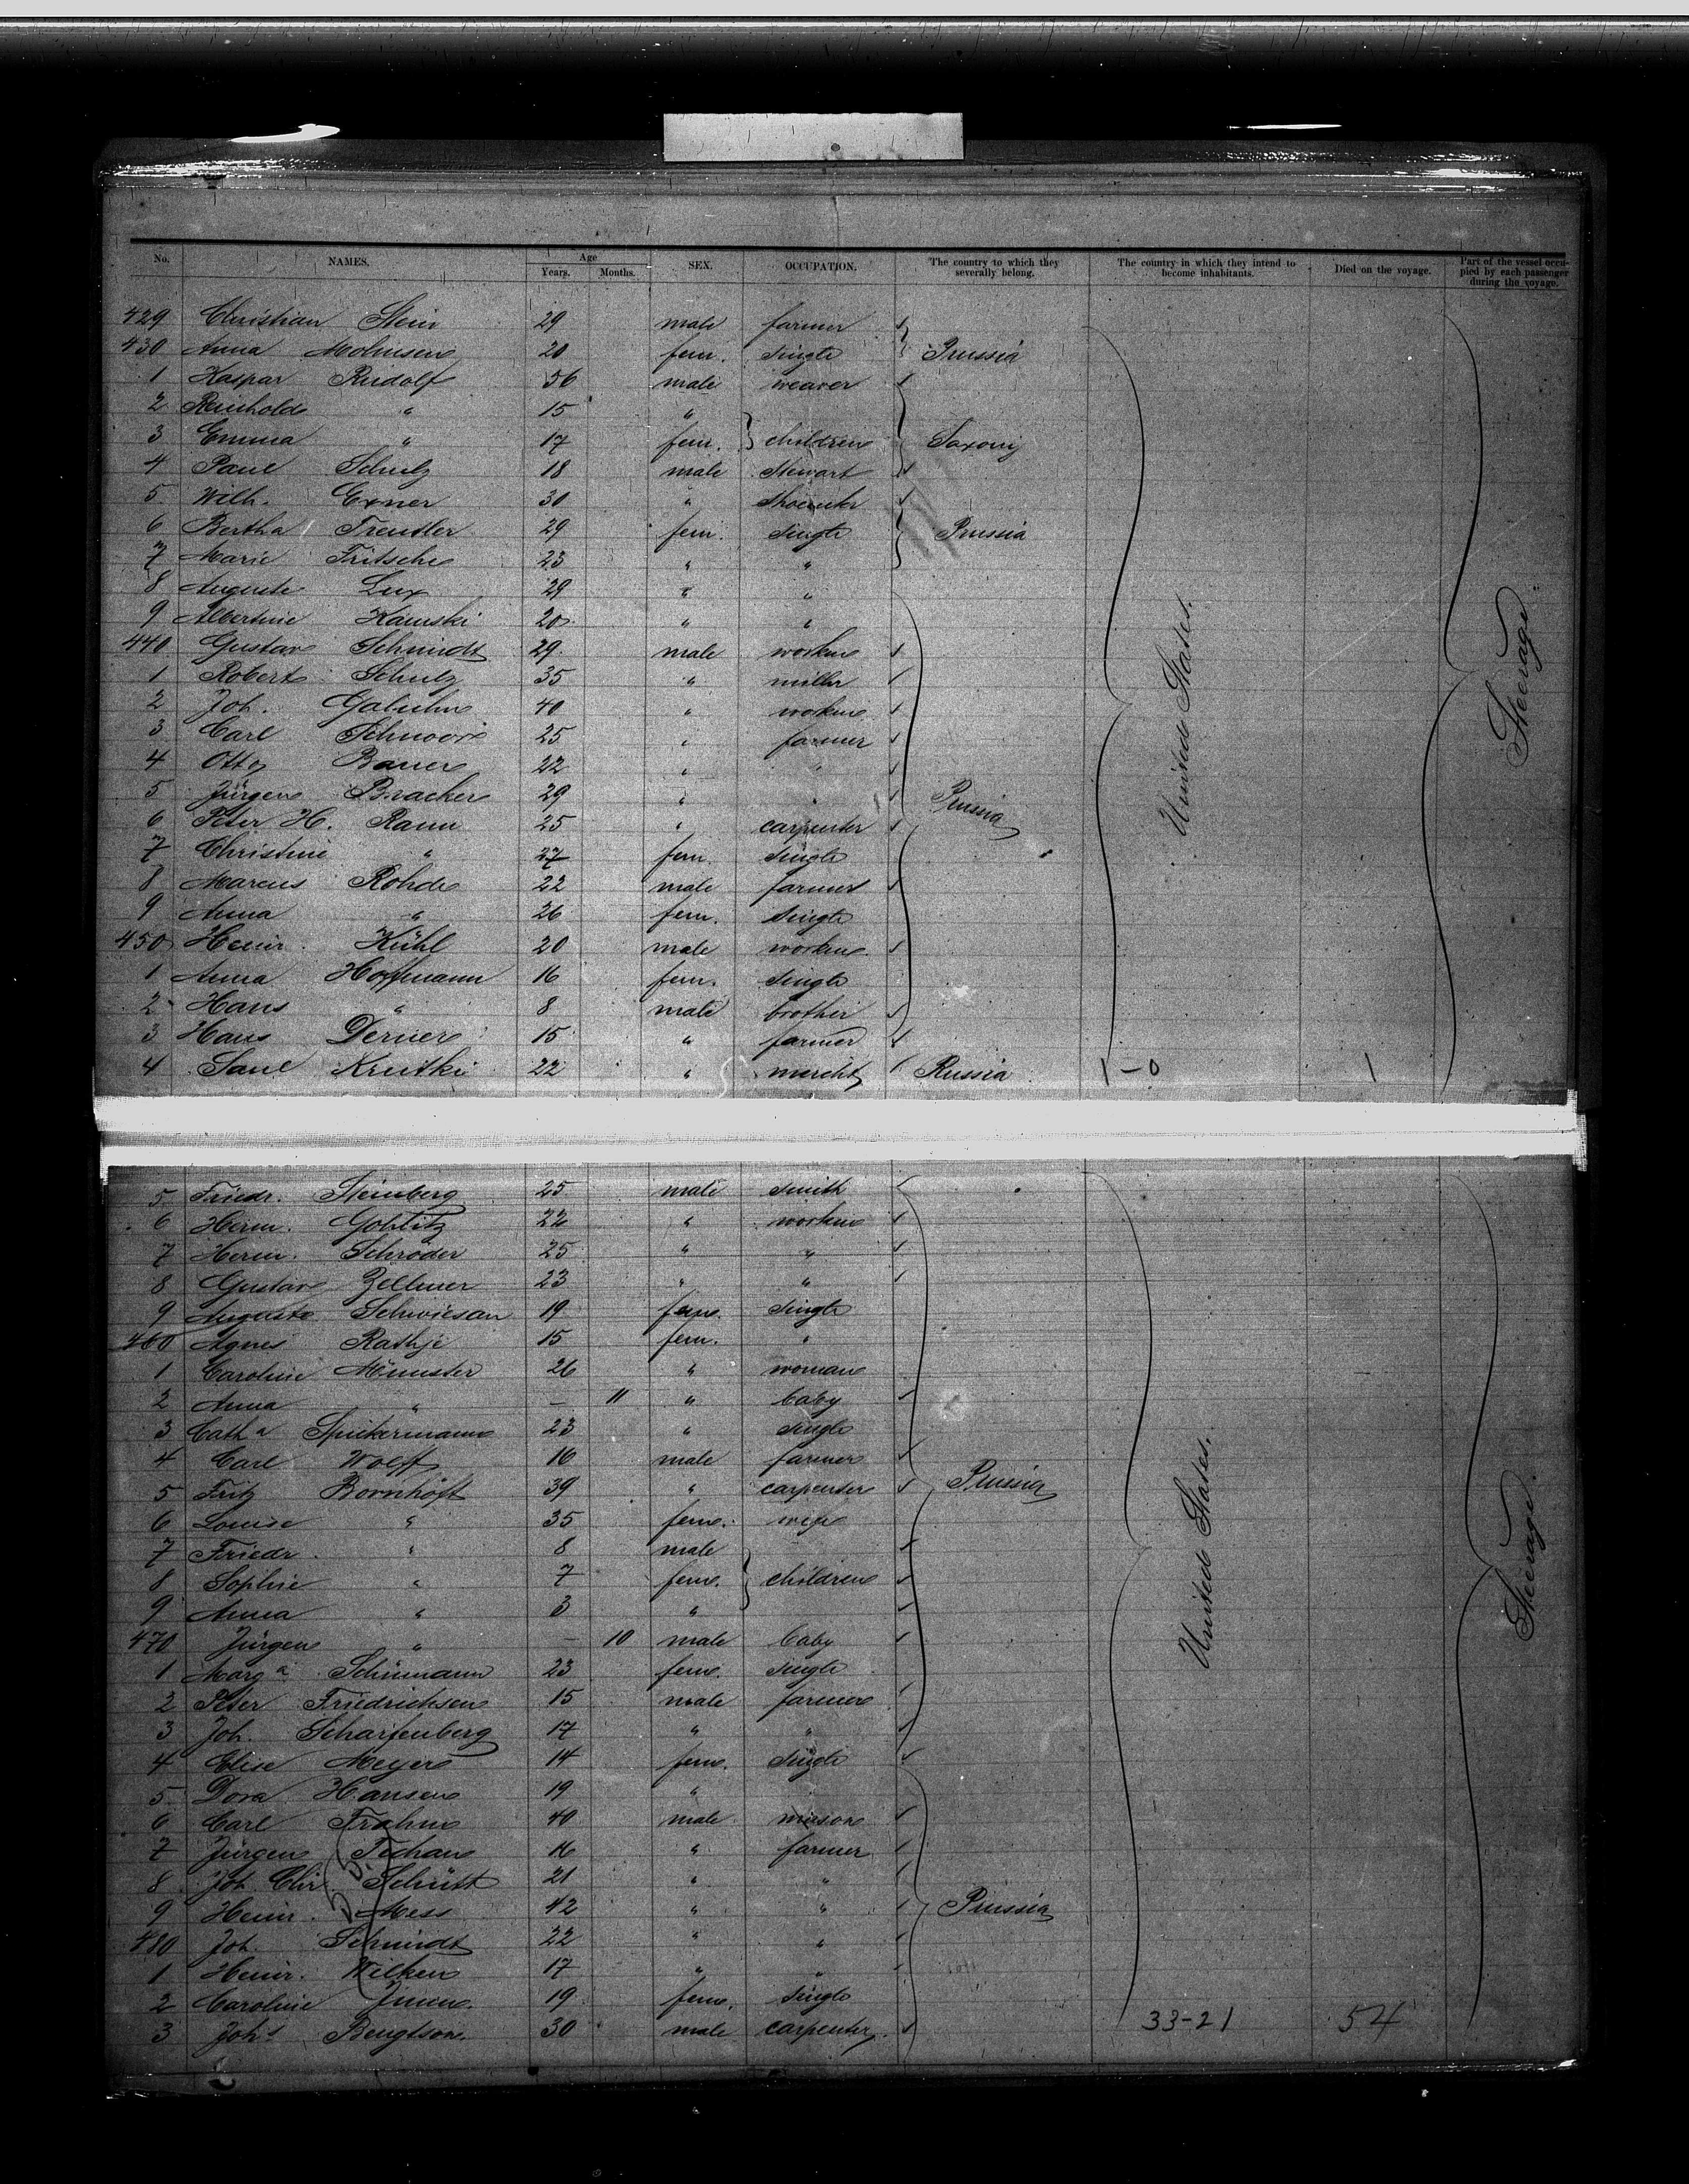 No. NAMES. Age Years. Months. SEX. OCCUPATION. The country to which they severally belong. The country in which they intend to become inhabitants. Died on the voyage. Part of the vessel occupied by each passenger during the voyage.
429 Christian Stein 29 male farmer
430 Anna 20 fem. single Prussia
1 Kaspar Rudolf 56 male weaver
2 Reinhold " 15 "
3 Emma " 17 fem. children Saxony
4 Paul Schulz 18 male Stewart
5 Wilh. Exner 30 "
6 Bertha Treutler 29 fem. single Prussia
7 Marie Fritsche 23 " "
8 Auguste Lux 29 " "
9 Albertine Kamski 20 " "
440 Gustav Schmidt 29 male
1 Robert Schulz 35 " miller
2 Joh. 40 "
3 Carl Schnoor 25 " farmer
4 Otto Bauer 22 " " United States.
5 Jürgen Bracker 29 " " Prussia Steerage
6 Peter H. Rann 25 " carpenter
7 Christine " 27 fem. single
8 Marcus Rohde 22 male farmer
9 Anna " 26 fem. single
450 Heinr. Kühl 20 male
1 Anna Hoffmann 16 fem. single
2 Hans " 8 male brother
3 Hans 15 " farmer
4 22 " Russia 1-0 1
5 Friedr. Steinberg 25 male smith
6 Herm. Gohlitz 22 "
7 Herm. Schröder 25 " "
8 Gustav Zellmer 23 " "
9 Auguste 19 fem. single
460 Agnes Rathje 15 fem. "
1 Caroline Münster 26 " woman
2 Anna " — 11 " baby
3 Cath a Spickermann 23 " single
4 Carl Wolff 16 male farmer
5 Fritz Bornhöft 39 " carpenter Prussia
6 Louise " 35 fem. wife
7 Friedr. " 8 male
8 Sophie " 7 fem. children
9 Anna " 3 " United States.
470 Jürgen " — 10 male baby Steerage
1 Marg a Schümann 23 fem. single
2 Peter Friedrichsen 15 male farmer
3 Joh. Scharfenberg 17 " "
4 Elise Meyer 14 fem. single
5 Dora Hansen 19 "
6 Carl Frahm 40 male mason
7 Jürgen 16 " farmer
8 Joh. Chr. Schütt 21 " "
9 Heinr. Mess 42 " " Prussia
480 Joh. Schmidt 22 " "
1 Heinr. Wilken 17 " "
2 Caroline 19 fem. single
3 Joh s Bengtson 30 male carpenter 33-21 54